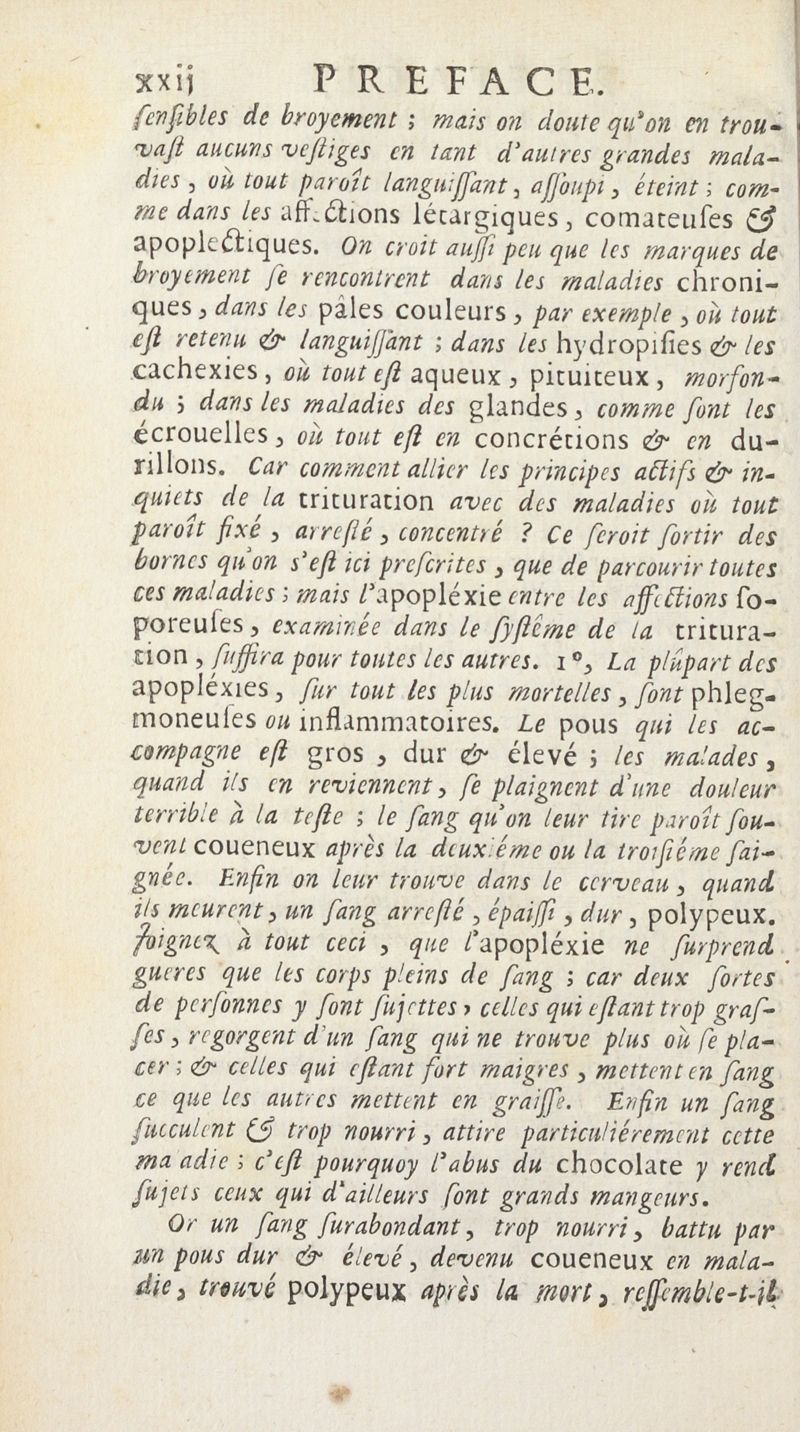 xxij PREFACE.
ſenſibles de broyement ; mais on doute qu'on en trou-
vaſt aucuns veſtiges en tant d'autres grandes mala-
dies , où tout paroît languiſſant , aſſoupi , éteint ; com-
me dans les affections létargiques , comateuſes &
apoplectiques. On croit auſſi peu que les marques de
broyement ſe rencontrent dans les maladies chroni-
ques , dans les pâles couleurs , par exemple , où tout
eſt retenu & languiſſant ; dans les hydropiſies & les
cachexies , où tout eſt aqueux , pituiteux , morfon-
du ; dans les maladies des glandes , comme ſont les
écrouelles , où tout eſt en concrétions & en du-
rillons. Car comment allier les principes actifs & in-
quiets de la trituration avec des maladies où tout
paroît fixé , arreſté , concentré ? Ce ſeroit ſortir des
bornes qu'on s'eſt ici preſcrites , que de parcourir toutes
ces maladies ; mais l'apopléxie entre les affections ſo-
poreuſes , examinée dans le ſyſtême de la tritura-
tion , ſuffira pour toutes les autres. 1°, La plûpart des
apopléxies , ſur tout les plus mortelles , ſont phleg-
moneuſes ou inflammatoires. Le pous qui les ac-
compagne eſt gros , dur & élevé ; les malades ,
quand ils en reviennent , ſe plaignent d'une douleur
terrible à la teſte ; le ſang qu'on leur tire paroît ſou-
vent coueneux après la deuxiéme ou la troiſiéme ſai-
gnée. Enfin on leur trouve dans le cerveau , quand
ils meurent , un ſang arreſté , épaiſſi , dur , polypeux.
Joignez à tout ceci , que l'apopléxie ne ſurprend
gueres que les corps pleins de ſang ; car deux ſortes
de perſonnes y ſont ſujettes , celles qui eſtant trop graſ-
ſes , regorgent d'un ſang qui ne trouve plus où ſe pla-
cer ; & celles qui eſtant fort maigres , mettent en ſang
ce que les autres mettent en graiſſe. Enfin un ſang
ſucculent & trop nourri , attire particuliérement cette
ma adie ; c'eſt pourquoy l'abus du chocolate y rend
ſujets ceux qui d'ailleurs ſont grands mangeurs.
Or un ſang ſurabondant , trop nourri , battu par
un pous dur & élevé , devenu coueneux en mala-
die , trouvé polypeux après la mort , reſſemble-t-il